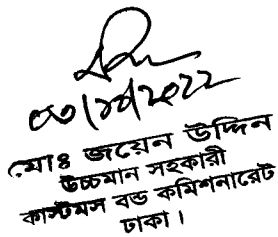 ০৩/১০/২০২২
মোঃ জয়েন উদ্দিন
উচ্চমান সহকারী
কাস্টমস বন্ড কমিশনারেট
ঢাকা।